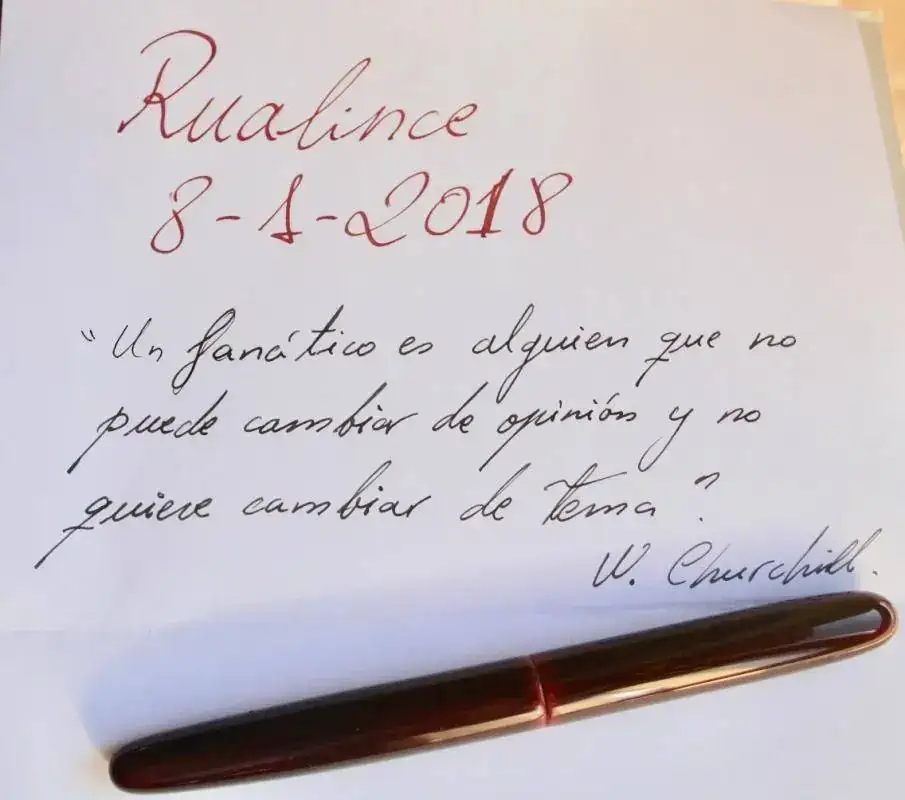 Rualince
8-1-2018
"Un fanático es alguien que no
puede cambiar de opinión y no
quiere cambiar de tema"
W. Churchill.